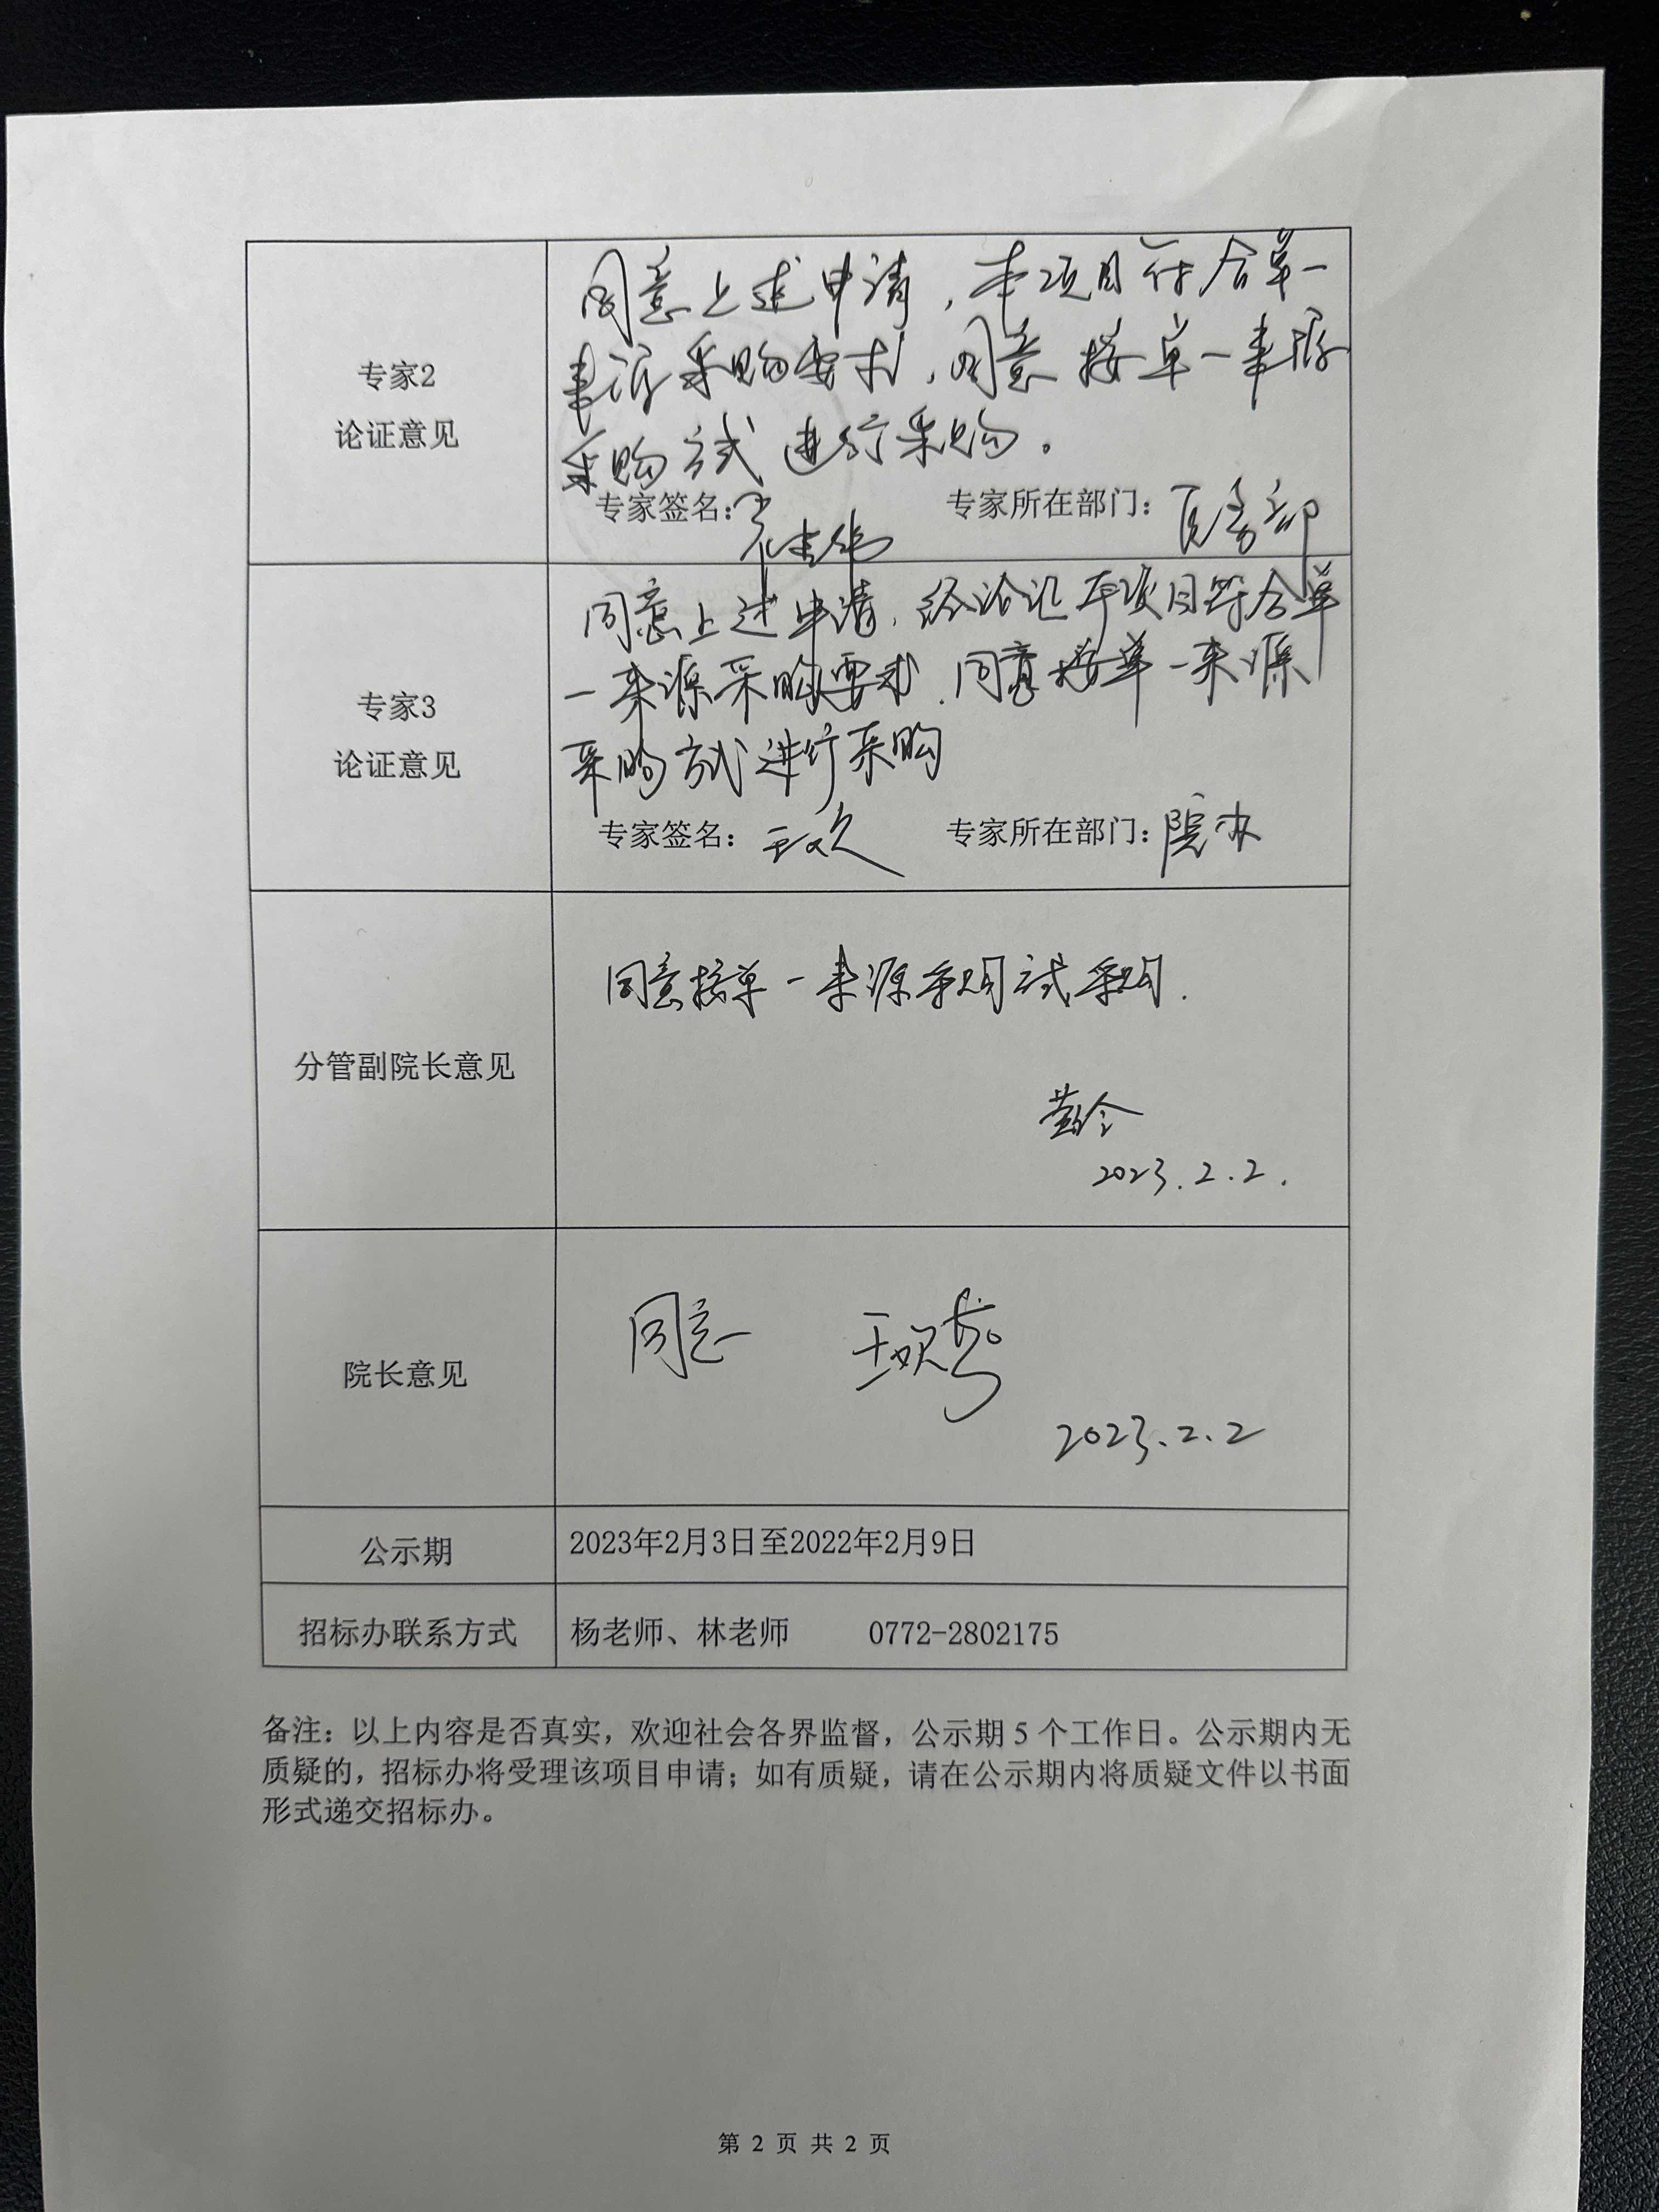 同意上述申请，本项目符合单一
来源采购要求，同意按单一来源
采购方式进行采购。
专家2
论证意见
专家签名：
专家所在部门：
同意上述申请，经论证本项目符合单
一来源采购要求，同意按单一来源
采购方式进行采购
专家3
论证意见
专家签名：
专家所在部门：院办
同意按单一来源采购方式采购.
分管副院长意见
2023.2.2.
院长意见
同意
2023.2.2
公示期
2023年2月3日至2022年2月9日
招标办联系方式
杨老师、林老师 0772-2802175
备注：以上内容是否真实，欢迎社会各界监督，公示期 5 个工作日。公示期内无
质疑的，招标办将受理该项目申请；如有质疑，请在公示期内将质疑文件以书面
形式递交招标办。
第 2 页 共 2 页